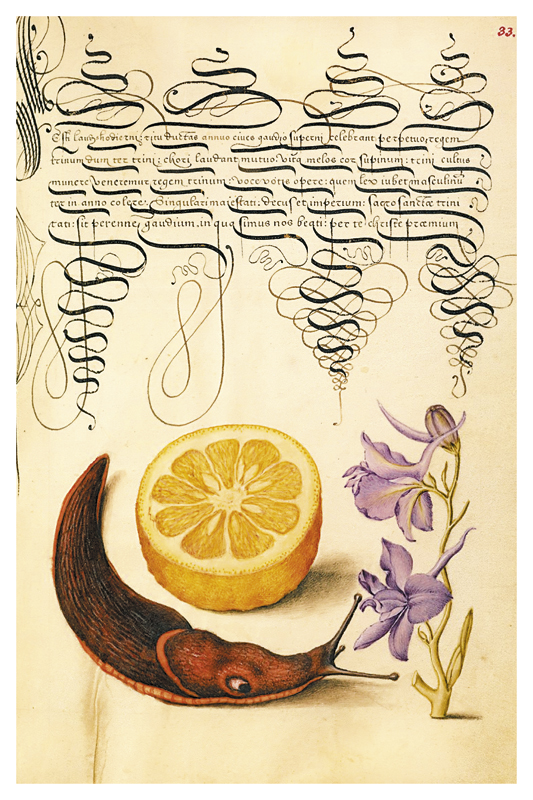 33.
hodierni: ritu ductas annuo cives gaudio superni celebrant perpetuo, regem
trinum dum ter trini: chori laudant mutuo vita melos cor supinum: trini cultus
munere veneremur, regem trinum, voce votis opere: quem lex iubet masculinū
ter in anno colere. Singulari maiestati: decus et imperium: sacrosanctæ trini
tati: sit perenne, gaudium, in qua simus nos beati: per te christe præmium